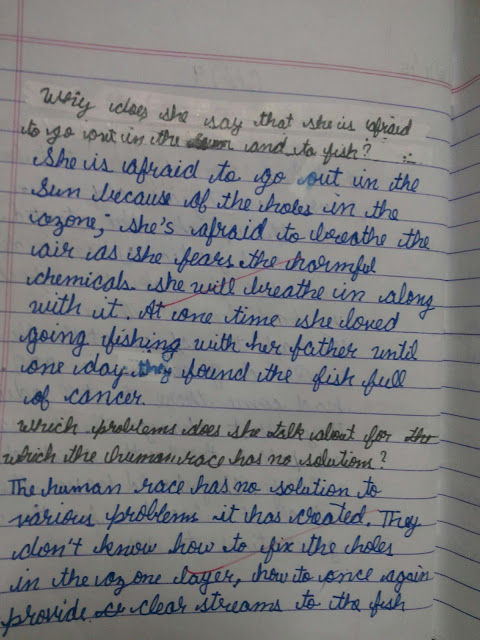 Why does she say that she is afraid
to go out in the sun and to fish?
She is afraid to go out in the
Sun because of the holes in the
ozone; she's afraid to breathe the
air as she fears the harmful
chemicals she will breathe in along
with it. At one time she loved
going fishing with her father until
one day they found the fish full
of cancer.
which problems does she talk about for
which the human race has no solutions?
The human race has no solution to
various problems it has created. They
don't know how to fix the holes
in the ozone layer, how to once again
provide clear streams to the fish